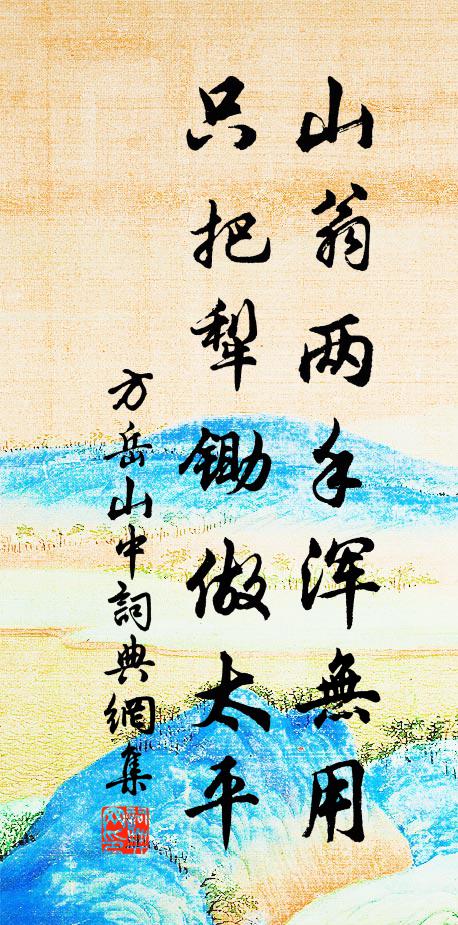 山翁两手浑無用
只把犁锄做太平
方岳山中詞典網集